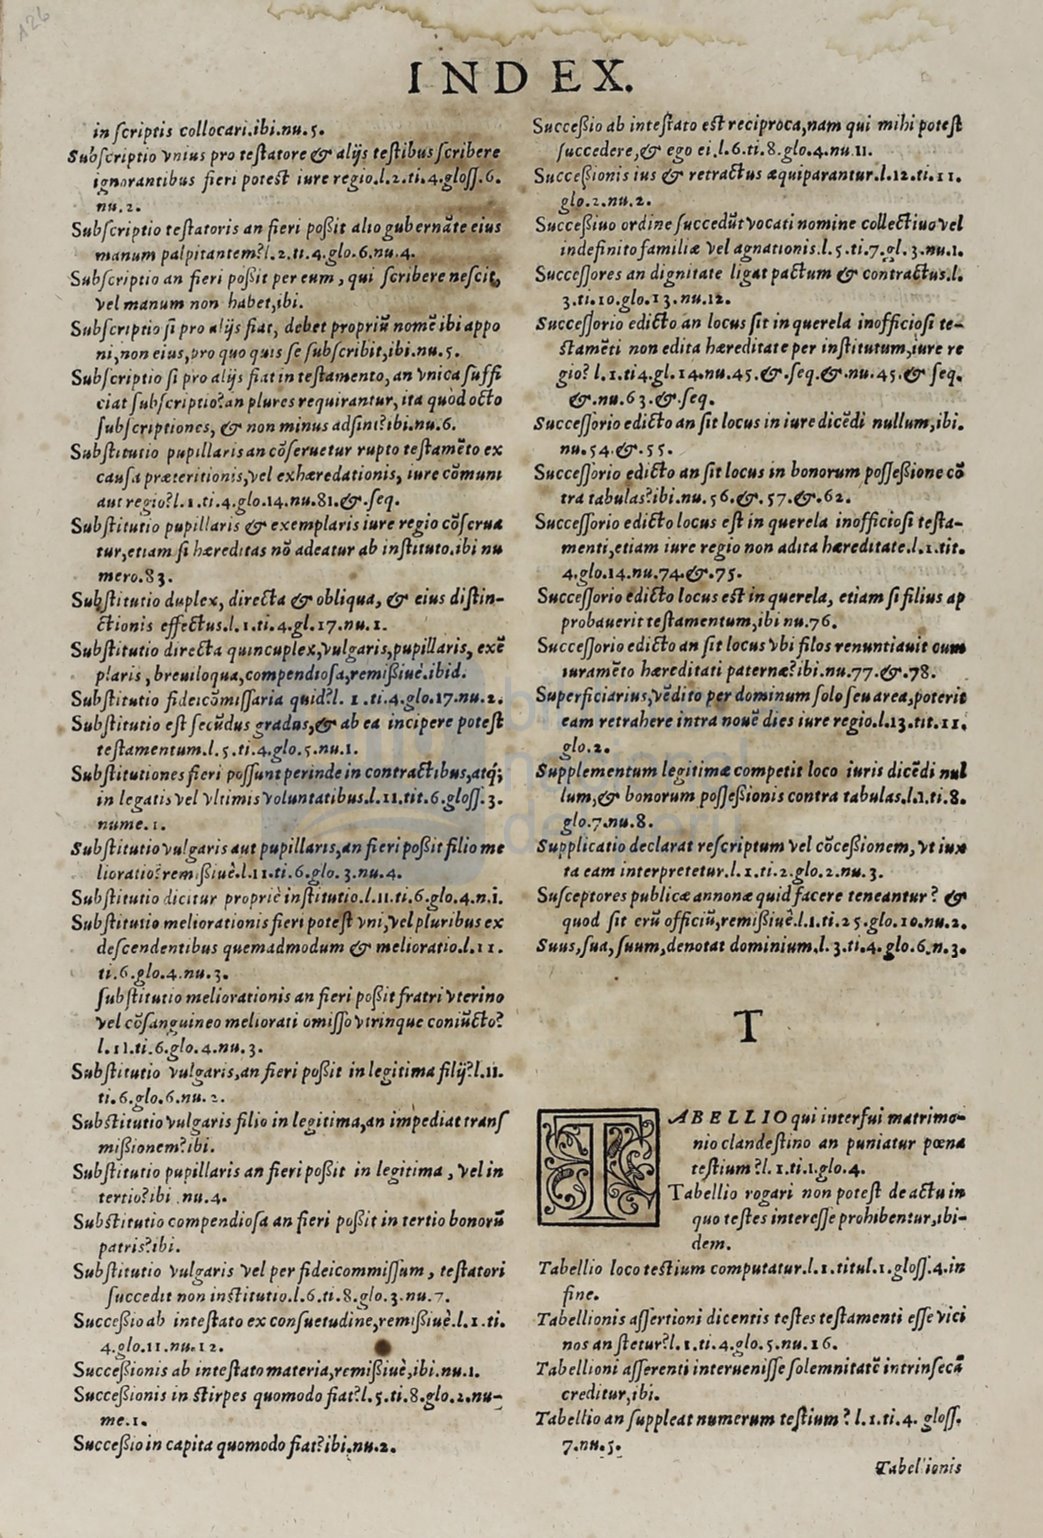 INDEX.
in ſcriptis collocari.ibi.nu.5.
Subſcriptio vnius pro teſtatore & alijs teſtibus ſcribere
ignorantibus fieri poteſt iure regio.l.2.ti.4.gloſſ.6.
nu.2.
Subſcriptio teſtatoris an fieri poßit alio gubernãte eius
manum palpitantem?l.2.ti.4.glo.6.nu.4.
Subſcriptio an fieri poßit per eum, qui ſcribere neſcit,
vel manum non habet,ibi.
Subſcriptio ſi pro alijs fiat, debet propriũ nomẽ ibi appo
ni,non eius,pro quo quis ſe ſubſcribit,ibi.nu.5.
Subſcriptio ſi pro alijs fiat in teſtamento, an vnica ſuffi
ciat ſubſcriptio?an plures requirantur, ita quòd octo
ſubſcriptiones, & non minus adſint?ibi.nu.6.
Subſtitutio pupillaris an cõſeruetur rupto teſtamẽto ex
cauſa præteritionis,vel exhæredationis, iure cõmuni
aut regio?l.1.ti.4.glo.14.nu.81.&.ſeq.
Subſtitutio pupillaris & exemplaris iure regio cõſerua
tur,etiam ſi hæreditas nõ adeatur ab inſtituto.ibi nu
mero.83.
Subſtitutio duplex, directa & obliqua, & eius diſtin-
ctionis effectus.l.1.ti.4.gl.17.nu.1.
Subſtitutio directa quincuplex,vulgaris,pupillaris, exẽ
plaris, breuiloqua,compendioſa,remißiuè.ibid.
Subſtitutio fideicõmiſſaria quid?l. 1.ti.4.glo.17.nu.2.
Subſtitutio eſt ſecũdus gradus,& ab ea incipere poteſt
teſtamentum.l.5.ti.4.glo.5.nu.1.
Subſtitutiones fieri poſſunt perinde in contractibus,atq;
in legatis vel vltimis voluntatibus.l.11.tit.6.gloſſ.3.
nume.1.
Subſtitutio vulgaris aut pupillaris,an fieri poßit filio me
lioratio?remißiuè.l.11.ti.6.glo.3.nu.4.
Subſtitutio dicitur propriè inſtitutio.l.11.ti.6.glo.4.n.1.
Subſtitutio meliorationis fieri poteſt vni,vel pluribus ex
deſcendentibus quemadmodum & melioratio.l.11.
ti.6.glo.4.nu.3.
ſubſtitutio meliorationis an fieri poßit fratri vterino
vel cõſanguineo meliorati omiſſo vtrinque coniũcto?
l.11.ti.6.glo.4.nu.3.
Subſtitutio vulgaris,an fieri poßit in legitima filij?l.11.
ti.6.glo.6.nu.2.
Subſtitutio vulgaris filio in legitima,an impediat tranſ
mißionem?ibi.
Subſtitutio pupillaris an fieri poßit in legitima, vel in
tertio?ibi.nu.4.
Subſtitutio compendioſa an fieri poßit in tertio bonorũ
patris?ibi.
Subſtitutio vulgaris vel per fideicommiſſum, teſtatori
ſuccedit non inſtitutio.l.6.ti.8.glo.3.nu.7.
Succeßio ab inteſtato ex conſuetudine,remißiuè.l.1.ti.
4.glo.11.nu.12.
Succeßionis ab inteſtato materia,remißiuè,ibi.nu.1.
Succeßionis in ſtirpes quomodo fiat?l.5.ti.8.glo.2.nu-
me.1.
Succeßio in capita quomodo fiat?ibi.nu.2.
Succeßio ab inteſtato eſt reciproca,nam qui mihi poteſt
ſuccedere,& ego ei.l.6.ti.8.glo.4.nu.11.
Succeßionis ius & retractus æquiparantur.l.12.ti.11.
glo.2.nu.2.
Succeßiuo ordine ſuccedũt vocati nomine collectiuo vel
indefinito familiæ vel agnationis.l.5.ti.7.gl.3.nu.1.
Succeſſores an dignitate ligat pactum & contractus.l.
3.ti.10.glo.13.nu.12.
Succeſſorio edicto an locus ſit in querela inofficioſi te-
ſtamẽti non edita hæreditate per inſtitutum,iure re
gio? l.1.ti4.gl.14.nu.45.&.ſeq.&.nu.45.& ſeq.
&.nu.63.&.ſeq.
Succeſſorio edicto an ſit locus in iure dicẽdi nullum,ibi.
nu.54.&.55.
Succeſſorio edicto an ſit locus in bonorum poſſeßione cõ
tra tabulas?ibi.nu.56.&.57.&.62.
Succeſſorio edicto locus eſt in querela inofficioſi teſta-
menti,etiam iure regio non adita hæreditate.l.1.tit.
4.glo.14.nu.74.&.75.
Succeſſorio edicto locus eſt in querela, etiam ſi filius ap
probauerit teſtamentum,ibi nu.76.
Succeſſorio edicto an ſit locus vbi filos renuntiauit cum
iuramẽto hæreditati paternæ?ibi.nu.77.&.78.
Superficiarius,vẽdito per dominum ſolo ſeu area,poterit
eam retrahere intra nouẽ dies iure regio.l.13.tit.11.
glo.2.
Supplementum legitimæ competit loco iuris dicẽdi nul
lum,& bonorum poſſeßionis contra tabulas.l.1.ti.8.
glo.7.nu.8.
Supplicatio declarat reſcriptum vel cõceßionem, vt iux
ta eam interpretetur.l.1.ti.2.glo.2.nu.3.
Suſceptores publicæ annonæ quid facere teneantur? &
quod ſit erũ officiũ,remißiuè.l.1.ti.25.glo.10.nu.2.
Suus,ſua,ſuum,denotat dominium.l.3.ti.4.glo.6.n.3.
T
TABELLIO qui interfui matrimo-
nio clandeſtino an puniatur pœna
teſtium?l.1.ti.1.glo.4.
Tabellio rogari non poteſt de actu in
quo teſtes intereſſe prohibentur,ibi-
dem.
Tabellio loco teſtium computatur.l.1.titul.1.gloſſ.4.in
fine.
Tabellionis aſſertioni dicentis teſtes teſtamenti eſſe vici
nos an ſtetur?l.1.ti.4.glo.5.nu.16.
Tabellioni aſſerenti interueniſſe ſolemnitatẽ intrinſecã
creditur,ibi.
Tabellio an ſuppleat numerum teſtium? l.1.ti.4.gloſſ.
7.nu.5.
Tabellionis